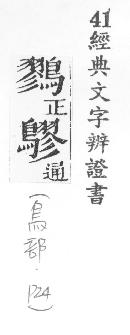 41經典文字辨證書
鷚正通
(鳥部.P24)